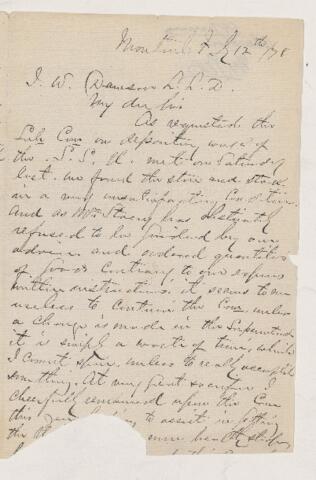 Montreal July 12th/78
J. W. Dawson L.L.D.
My dear Sir
As requested the
Sub Com. on depository work of
the S. S. U. met on Saturday
last. We found the store and stock
in a very unsatisfactory condition.
And as Mr. has distinctly
refused to be guided by our
advice and ordered quantities
of goods contrary to our express
written instructions it seems to me
useless to continue the Com. unless
a change is made in the Superintendent
it is simply a waste of time, which
I cannot spare, unless to really accomplish
something. At very great sacrifice I
cheerfully remained upon the Com
this year to assist in getting
the more healthy